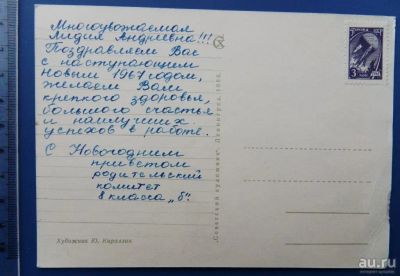 Многоуважаемая
Лидия Андреевна!!!
Поздравляем Вас
с наступающим
Новым 1967 годом,
желаем Вам
крепкого здоровья,
большого счастья
и наилучших
успехов в работе.
С Новогодним
приветом
родительский
комитет
8 класса „б".
Художник Ю. Кириллов
„Советский художник". Ленинград.
3
au.ru